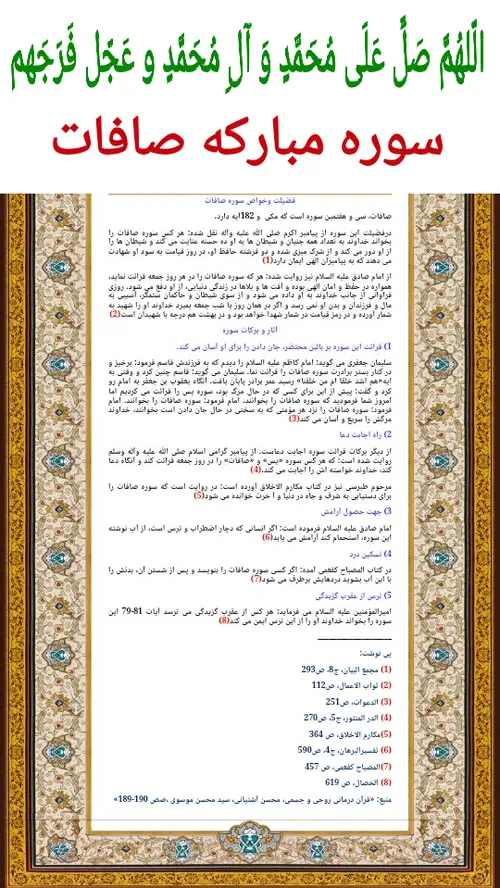 الَّلهُمَّ صَلِّ عَلَى مُحَمَّدٍ وَ آلِ مُحَمَّدٍ و عَجِّل فَرَجَهم
سوره مبارکه صافات
فضیلت وخواص سوره صافات
صافات، سی و هفتمین سوره است که مکی و 182ایه دارد.
درفضیلت این سوره از پیامبر اکرم صلی الله علیه وآله نقل شده: هر کس سوره صافات را
بخواند خداوند به تعداد همه جنیان و شیطان ها به او ده حسنه عنایت می کند و شیطان ها را
از او دور می کند و از شرک مبری شده و دو فرشته حافظ او، در روز قیامت به سود او شهادت
می دهند که به پیامبران الهی ایمان دارد(1)
از امام صادق علیه السلام نیز روایت شده: هر که سوره صافات را در هر روز جمعه قرائت نماید،
همواره در حفظ و امان الهی بوده و آفت ها و بلاها در زندگی دنیایی، از او دفع می شود. روزی
فراوانی از جانب خداوند به او داده می شود و از سوی شیطان و حاکمان ستمگر، آسیبی به
مال و فرزندان و بدن او نمی رسد و اگر در همان روز یا شب جمعه بمیرد خداوند او را شهید به
شمار آورده و در رمز قیامت در شمار شهدا خواهد بود و در بهشت هم درجه با شهیدان است(2)
آثار و برکات سوره
1) قرائت این سوره بر بالین محتضر، جان دادن را برای او آسان می کند.
سلیمان جعفری می گوید: امام کاظم علیه السلام را دیدم که به فرزندش قاسم فرمود: برخیز و
در کنار بستر برادرت سوره صافات را قرائت نما. سلیمان می گوید: قاسم چنین کرد و وقتی به
ایه«هم اشد خلقا ام من خلقنا» رسید عمر برادر پایان یافت. آنگاه یعقوب بن جعفر به امام رو
کرد و گفت: پیش از این برای کسی که در حال مرگ بود، سوره یس را قرائت می کردیم اما
امروز شما فرمودید که سوره صافات را بخوانند. امام فرمود: سوره صافات را بخوانند. امام
فرمود: سوره صافات را نزد هر مؤمنی که به سختی در حال جان دادن است بخوانند، خداوند
مرگش را سریع و آسان می کند(3)
2) راه اجابت دعا
از دیگر برکات قرائت سوره اجابت دعاست. از پیامبر گرامی اسلام صلی الله علیه وآله وسلم
روایت شده است: که هر کس سوره «یس» و «صافات» را در روز جمعه قرائت کند و آنگاه دعا
کند، خداوند خواسته اش را اجابت می کند.(4)
مرحوم طبرسی نیز در کتاب مکارم الاخلاق آورده است: در روایت است که سوره صافات را
برای دستیابی به شرف و جاه در دنیا و آ خرت خوانده می شود(5)
3) جهت حصول آرامش
امام صادق علیه السلام فرموده است: اگر انسانی که دچار اضطراب و ترس است، از آب نوشته
این سوره، استحمام کند آرامش می یابد(6)
4) تسکین درد
در کتاب المصباح کفعمی آمده: اگر کسی سوره صافات را بنویسد و پس از شستن آن، بدنش را
با این آب بشوید دردهایش برطرف می شود(7)
5) ترس از عقرب گزیدگی
امیرالمؤمنین علیه السلام می فرماید: هر کس از عقرب گزیدگی می ترسد ایات 81-79 این
سوره را بخواند خداوند او را از این ترس ایمن می کند(8)
پی نوشت:
(1) مجمع البیان، ج8، ص293
(2) ثواب الاعمال، ص112
(3) الدعوات، ص251
(4) الدر المنثور، ج5، ص270
(5)مکارم الاخلاق، ص 364
(6) تفسیرالبرهان، ج4، ص590
(7)المصباح کفعمی، ص 457
(8) الخصال، ص 619
منبع: «قرآن درمانی روحی و جسمی، محسن آشتیانی، سید محسن موسوی ،صص 190-189»